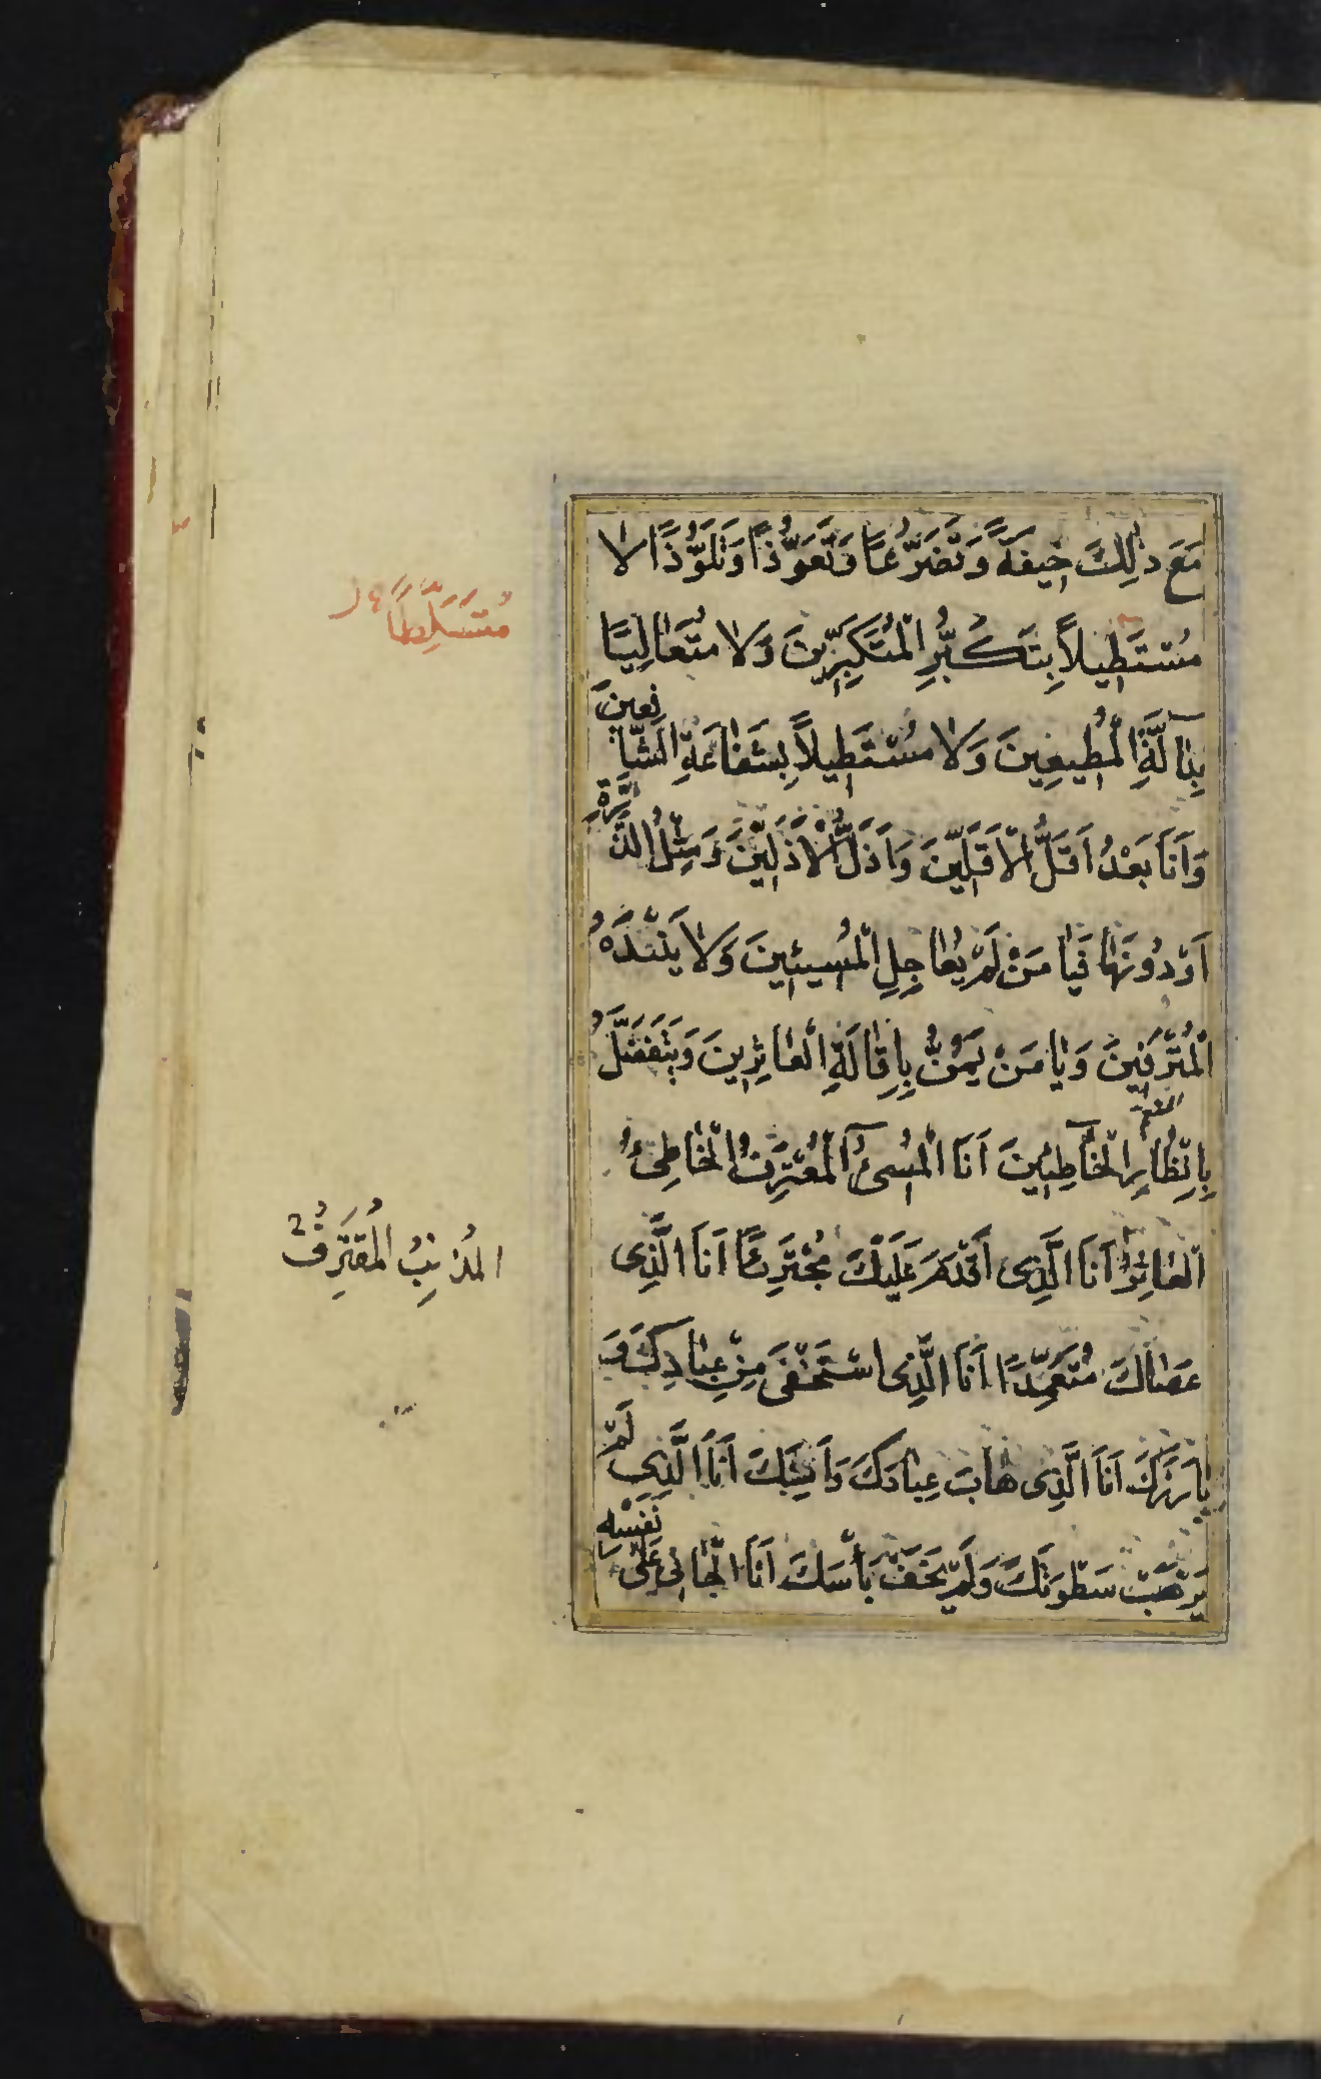 مَعَ ذٰلِكَ خِيفَةً وَتَضَرُّعًا وَتَعَوُّذًا وَتَلَوُّذًا لَا
مُسْتَطِيلاً بِتَكَبُّرِ الْمُتَكَبِّرِينَ وَلَا مُتَعَالِيًا
بِدَآلَّةِ الْمُطِيعِينَ وَلَا مُسْتَطِيلاً بِشَفَاعَةِ الشَّافِعِينَ
وَاَنَا بَعْدُ اَقَلُّ الْاَقَلِّينَ وَاَذَلُّ الْاَذَلِّينَ وَمِثْلُ الذَّرَّةِ
اَوْ دُونَهَا فَيَا مَنْ لَمْ يُعَاجِلِ الْمُسِيئِينَ وَلَا يَنْدَهُ
الْمُتْرَفِينَ وَيَا مَنْ يَمُنُّ بِاِقَالَةِ الْعَاثِرِينَ وَيَتَفَضَّلُ
بِاِنْظَارِ الْخَاطِئِينَ اَنَا الْمُسِىءُ الْمُعْتَرِفُ الْخَاطِىءُ
الْعَاثِرُ اَنَا الَّذِى اَقْدَمَ عَلَيْكَ مُجْتَرِئًا اَنَا الَّذِى
عَصَاكَ مُتَعَمِّدًا اَنَا الَّذِى اسْتَخْفَى مِنْ عِبَادِكَ وَ
بَارَزَكَ اَنَا الَّذِى هَابَ عِبَادَكَ وَاَمِنَكَ اَنَا الَّذِى لَمْ
يَرْهَبْ سَطْوَتَكَ وَلَمْ يَخَفْ بَأْسَكَ اَنَا الْجَانِى عَلٰى نَفْسِهِ
مُتَسَلِّطًا
الْمُذْنِبُ الْمُقْتَرِفُ